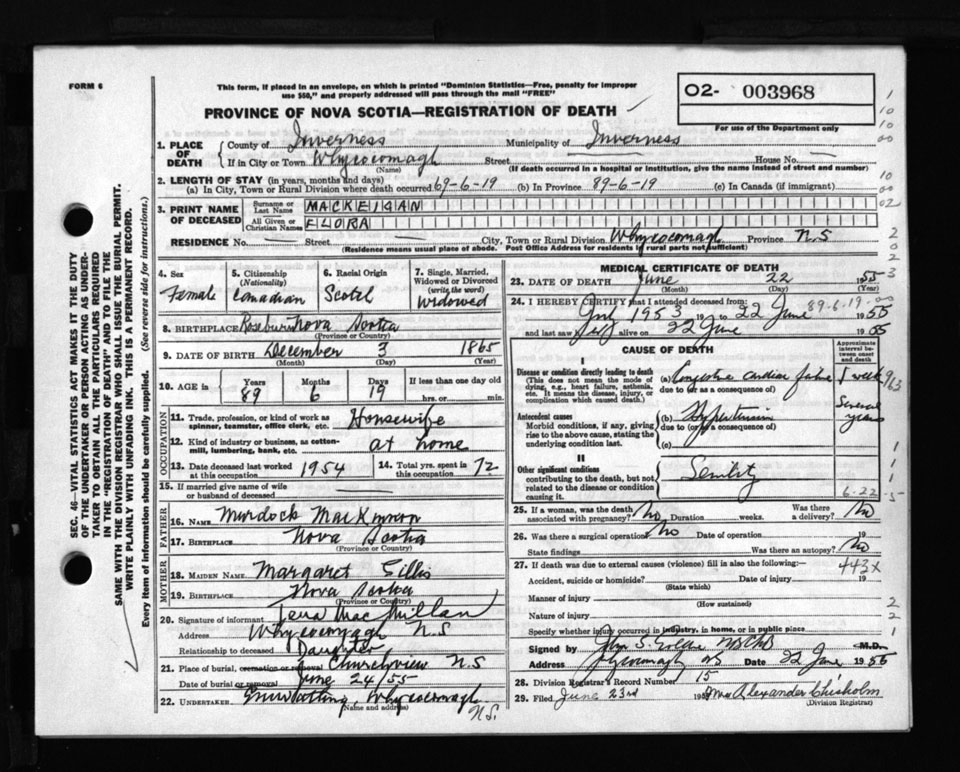 FORM 6
This form, if placed in an envelope, on which is printed "Dominion Statistics—Free, penalty for improper
use $50," and properly addressed will pass through the mail "FREE"
PROVINCE OF NOVA SCOTIA—REGISTRATION OF DEATH
O2- 003968
For use of the Department only
1. PLACE OF DEATH
County of Inverness Municipality of Inverness
If in City or Town Whycocomagh Street House No. —
(Name) (If death occurred in a hospital or institution, give the name instead of street and number)
2. LENGTH OF STAY (in years, months and days)
(a) In City, Town or Rural Division where death occurred 69-6-19 (b) In Province 89-6-19 (c) In Canada (if immigrant)
3. PRINT NAME OF DECEASED
Surname or Last Name MACKEIGAN
All Given or Christian Names FLORA
RESIDENCE No. — Street — City, Town or Rural Division Whycocomagh Province N.S
(Residence means usual place of abode. Post Office Address for residents in rural parts not sufficient)
4. Sex Female
5. Citizenship (Nationality) Canadian
6. Racial Origin Scotch
7. Single, Married, Widowed or Divorced (write the word) Widowed
8. BIRTHPLACE Roseburn Nova Scotia
(Province or Country)
9. DATE OF BIRTH December 3 1865
(Month) (Day) (Year)
10. AGE Years 89 Months 6 Days 19 If less than one day old
hrs. or min.
OCCUPATION
11. Trade, profession, or kind of work as spinner, teamster, office clerk, etc. Housewife
12. Kind of industry or business, as cotton-mill, lumbering, bank, etc. at home
13. Date deceased last worked at this occupation 1954 14. Total yrs. spent in this occupation 72
15. If married give name of wife or husband of deceased
FATHER
16. NAME Murdock MacKinnon
17. BIRTHPLACE Nova Scotia
(Province or Country)
MOTHER
18. MAIDEN NAME Margaret Gillis
19. BIRTHPLACE Nova Scotia
(Province or Country)
20. Signature of informant MacMillan
Address Whycocomagh N.S
Relationship to deceased Daughter
21. Place of burial, cremation or removal Churchview N.S
Date of burial or removal June 24/55
22. UNDERTAKER Whycocomagh
(Name and address) N.S.
MEDICAL CERTIFICATE OF DEATH
23. DATE OF DEATH June 22 1955
(Month) (Day) (Year)
24. I HEREBY CERTIFY that I attended deceased from:
1953 19 to 22 June 1955
89-6-19-00
and last saw alive on 22 June 1955
CAUSE OF DEATH
Approximate interval between onset and death
I
Disease or condition directly leading to death
(This does not mean the mode of dying, e.g., heart failure, asthenia, etc. It means the disease, injury, or complication which caused death.)
(a) Congestive cardiac failure 1 week
due to (or as a consequence of)
Antecedent causes
Morbid conditions, if any, giving rise to the above cause, stating the underlying condition last.
(b) Hypertension Several years
due to (or as a consequence of)
(c)
II
Other significant conditions
contributing to the death, but not related to the disease or condition causing it.
Senility
6-22-5
25. If a woman, was the death associated with pregnancy? No Duration weeks. Was there a delivery? No
26. Was there a surgical operation? No Date of operation 19
State findings Was there an autopsy? No
27. If death was due to external causes (violence) fill in also the following:—
443X
Accident, suicide or homicide? Date of injury 19
(State which)
Manner of injury
(How sustained)
Nature of injury
Specify whether injury occurred in industry, in home, or in public place
Signed by M.D.
Address Whycocomagh NS Date 22 June 1955
28. Division Registrar's Record Number 15
29. Filed June 23rd 19 Mrs Alexander Chisholm
(Division Registrar)
SEC. 46—VITAL STATISTICS ACT MAKES IT THE DUTY
OF THE UNDERTAKER OR PERSON ACTING AS UNDER-
TAKER TO OBTAIN ALL THE PARTICULARS REQUIRED
IN THE "REGISTRATION OF DEATH" AND TO FILE THE
SAME WITH THE DIVISION REGISTRAR WHO SHALL ISSUE THE BURIAL PERMIT.
WRITE PLAINLY WITH UNFADING INK. THIS IS A PERMANENT RECORD.
Every item of information should be carefully supplied. (See reverse side for instructions.)